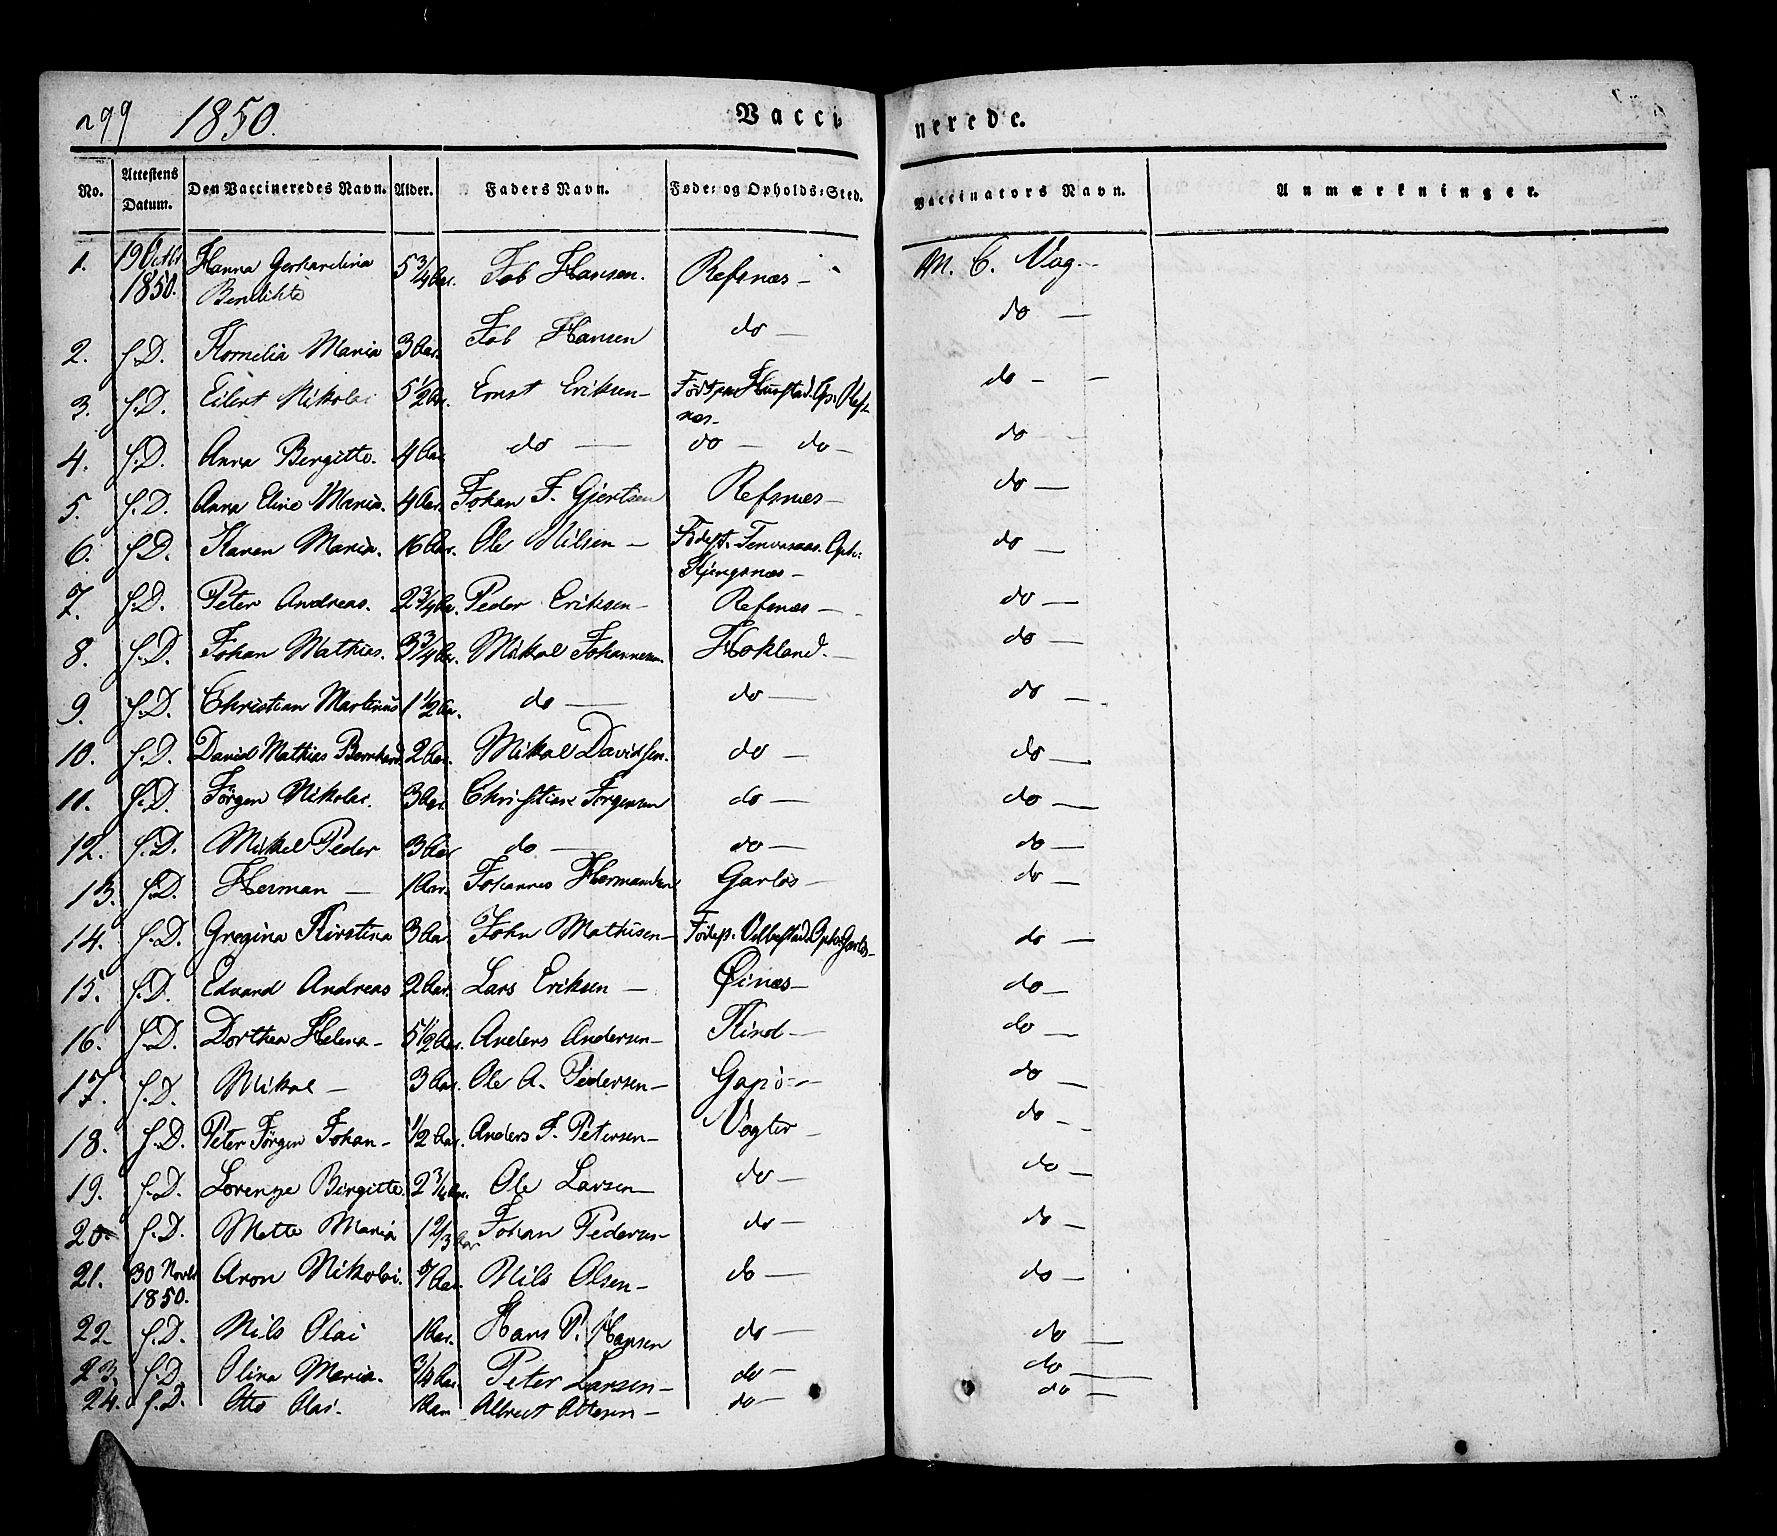 299 1850. Vaccinerede.
No. Attestens Datum. Den Vaccineredes Navn. Alder. Faders Navn. Føde- og Opholds-Sted. Vaccinators Navn. Anmærkninger.
1. 19 Octbr 1850. Hanna Gerhardina Benedikte 5 3/4 Aar. Job Hansen. Refsnæs – M. C. Vog
2. s.D. Kornelia Maria 3 Aar. Job Hansen do – do –
3. s.D. Eilert Nikolai 5 1/2 Aar. Ernst Eriksen – Refsnæs – do –
4. s.D. Anna Bergitte. 4 Aar do – do – do – do –
5. s.D. Anna Eline Maria. 4 Aar. Johan J. Gjertsen Refsnæs – do –
6. s.D. Karen Maria. 16 Aar. Ole Nilsen – Oph: Kjengsnæs – do –
7. s.D. Peter Andreas. 2 3/4 Aar. Peder Eriksen – Refsnæs – do –
8. s.D. Johan Mathias. 3 3/4 Aar. Mikal Johannesen. Hokland. – do –
9. s.D. Christian Martinus 1 1/2 Aar. do – do – do –
10. s.D. David Mathias Bernhard 2 Aar. Mikal Davidsen. do – do –
11. s.D. Jörgen Nikolai. 3 Aar. Christian Jörgensen do – do –
12. s.D. Mikal Peder 3 Aar do – do – do –
13. s.D. Herman – 1 Aar. Johannes Hermansen Garlös – do –
14. s.D. Gregina Kirstina 3 Aar. John Mathisen – Oph: Garlös – do –
15. s.D. Edvard Andreas 2 Aar. Lars Eriksen – Öinæs – do –
16. s.D. Dorthea Helena – 5 1/2 Aar. Anders Andersen – Kind – do –
17. s.D. Mikal – 3 Aar. Ole A. Pedersen – Gapö – do –
18. s.D. Peter Jörgen Johan – 1/2 Aar. Anders J. Petersen – Vogter – do –
19. s.D. Lorentze Birgitte. 2 3/4 Aar. Ole Larsen – do – do –
20. s.D. Mette Maria 1 2/3 Aar Johan Pedersen – do – do –
21. 30 Novbr 1850. Aron Nikolai. Aar. Nils Olsen – do – do –
22. s.D. Nils Olai 1 Aar. Hans P. Hansen do – do –
23. s.D. Olina Maria. 3/4 Aar. Peter Larsen – do – do –
24. s.D. Otto Olai. 1 Aar Albregt – do – do –